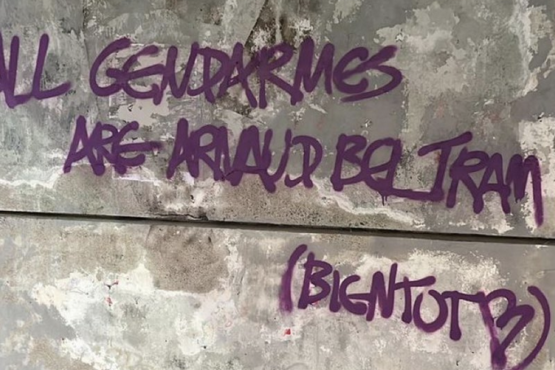 ALL GENDARMES
ARE ARNAUD BELTRAM
(BIGNTOT B)